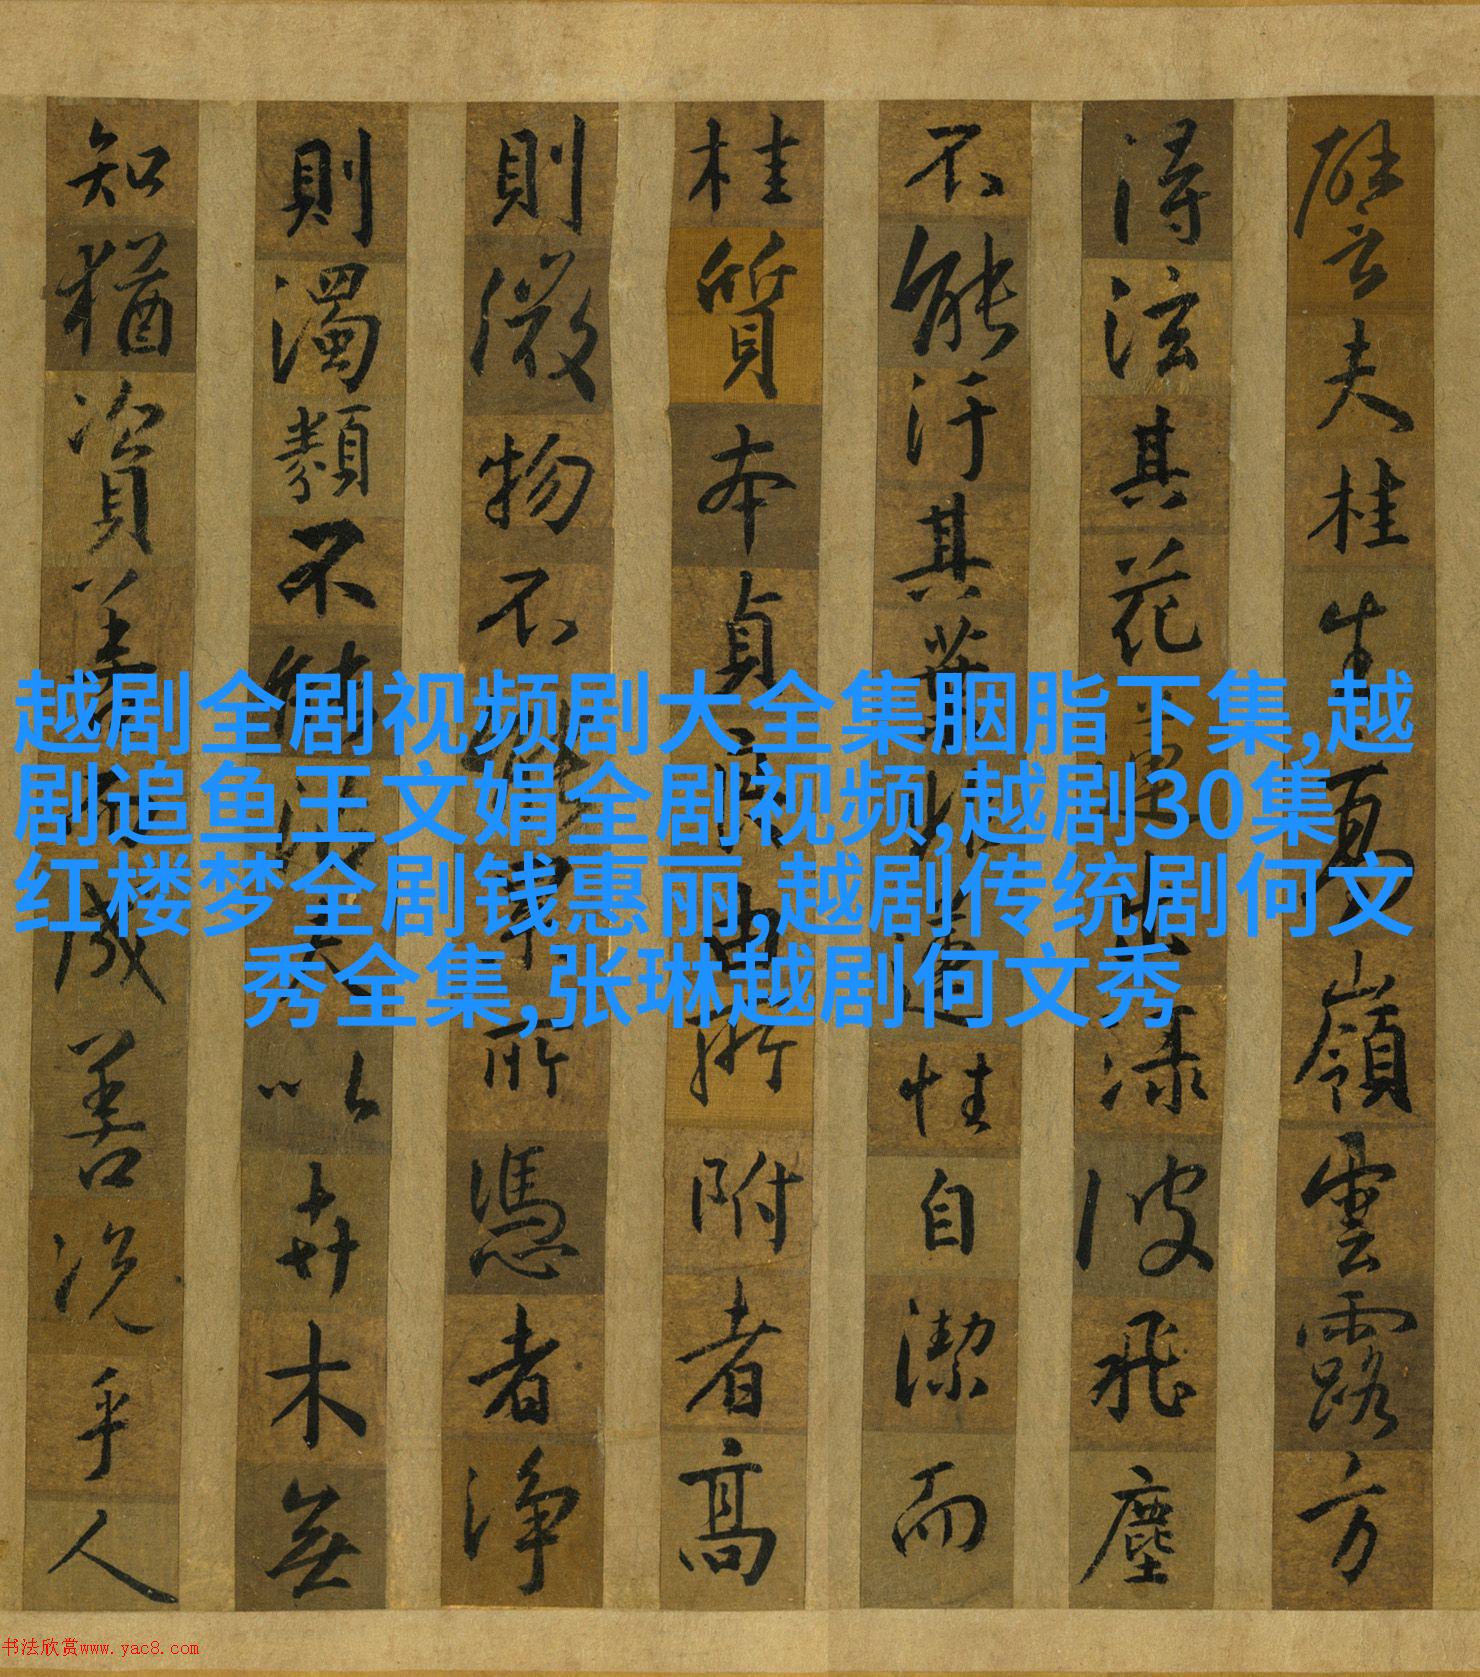 譬夫桂生高嶺雲露方
得泫其花蓮出淥波飛塵
不能汙其葉非蓮性自潔而
桂質本貞良由所附者高
則微物不能累所憑者淨
則濁類不能沾夫以卉木無
知猶資善而成善況乎人
越剧全剧视频剧大全集胭脂下集,越
剧追鱼王文娟全剧视频,越剧30集
红楼梦全剧钱惠丽,越剧传统剧何文
秀全集,张琳越剧何文秀
书法欣赏www.yac8.com